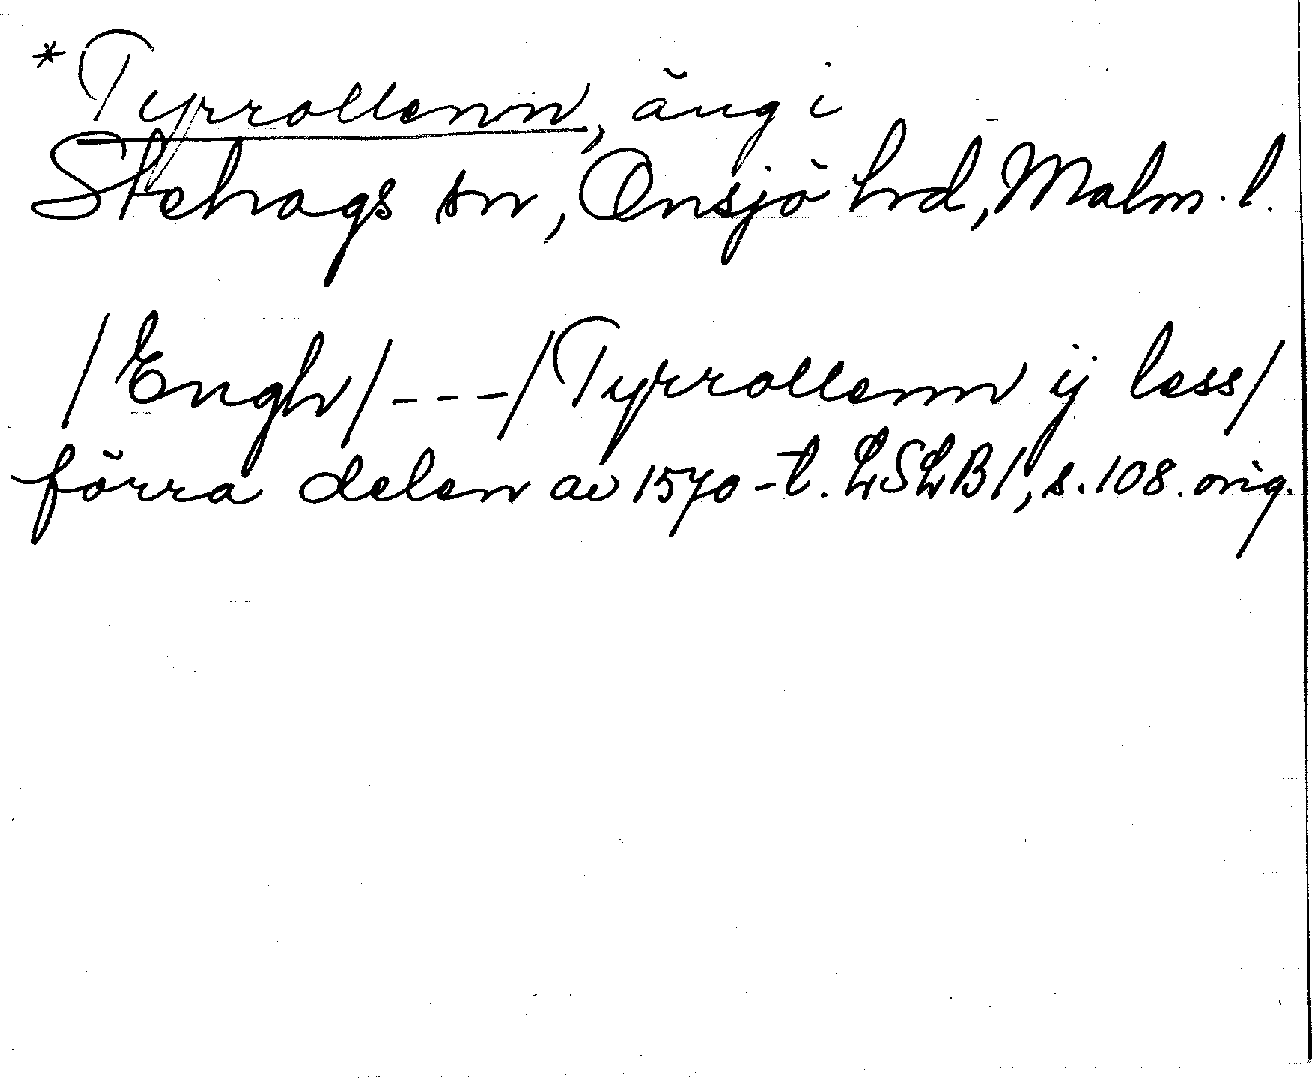 *Tyrrollenn, äng i
Stehags sn, Onsjö hrd, Malm. l.
/Engh/---/Tyrrollenn ij less/
förra delen av 1570-t. LSLB 1, s. 108. orig.